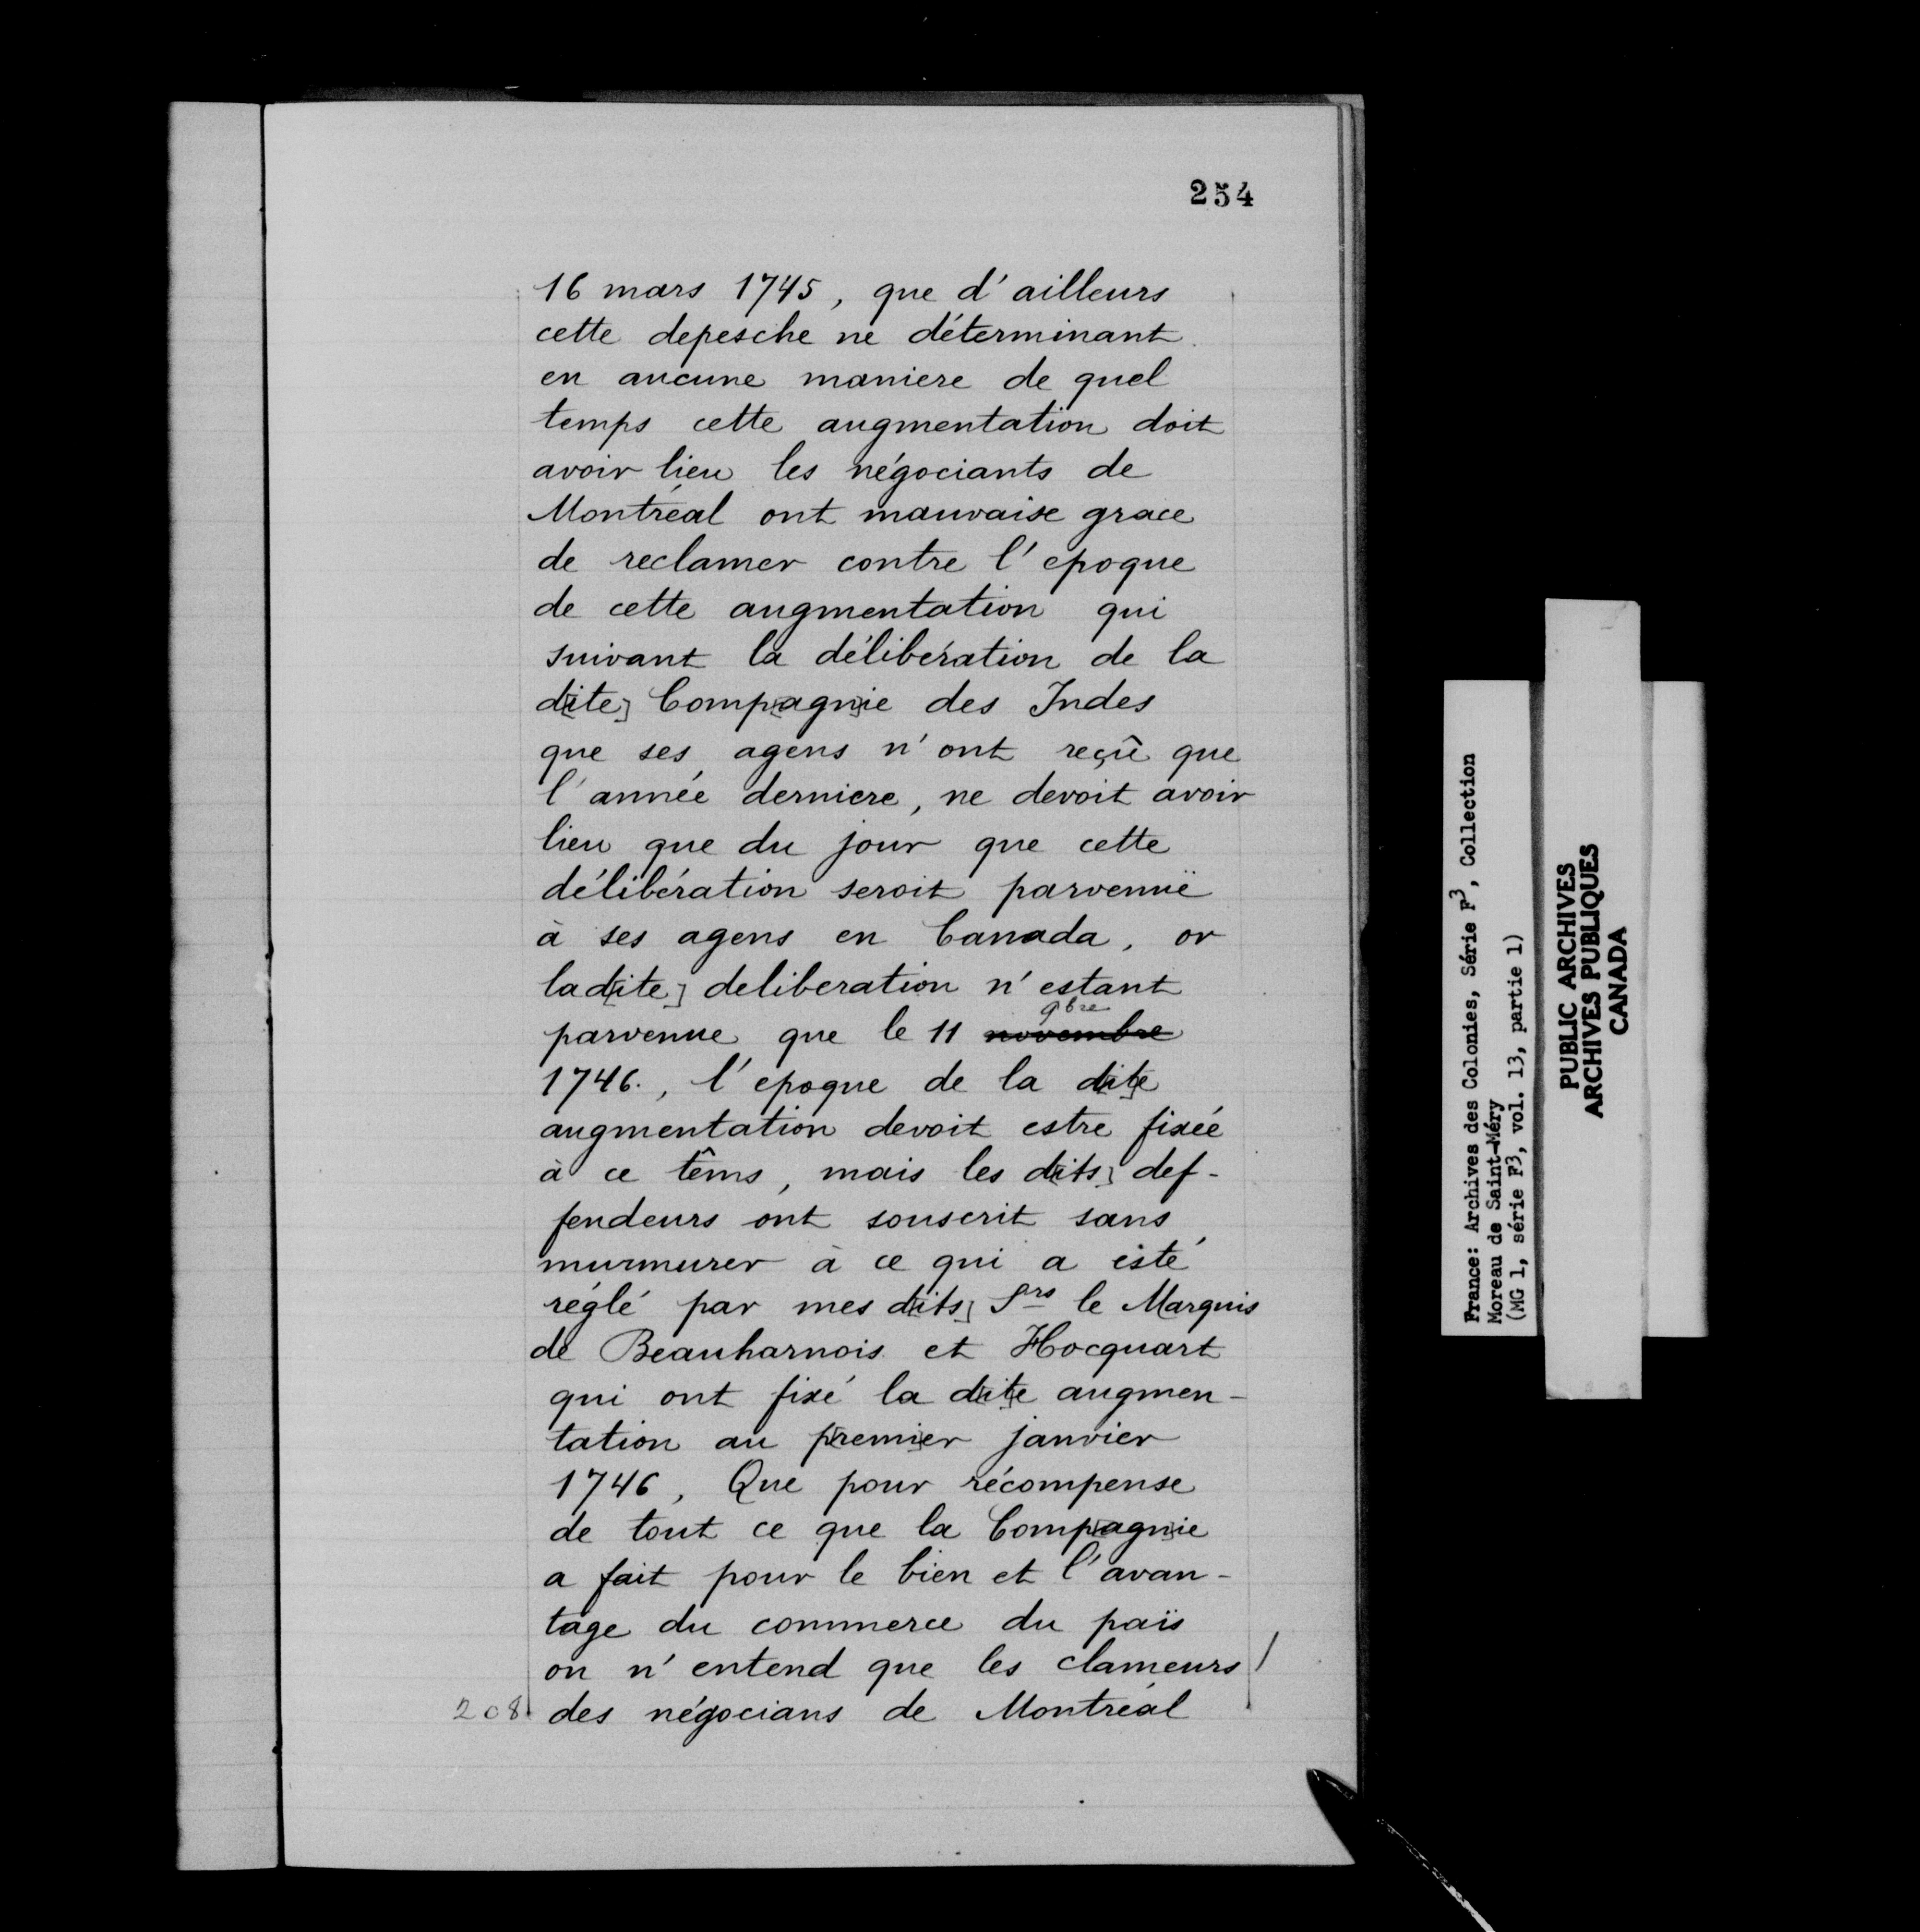 254
16 mars 1745, que d'ailleurs
cette depesche ne déterminant
en aucune maniere de quel
temps cette augmentation doit
avoir lieu les négociants de
Montréal ont mauvaise grace
de reclamer contre l'epoque
de cette augmentation qui
suivant la délibération de la
d[ite] Comp[agn]ie des Indes
que ses agens n'ont reçû que
l'année derniere, ne devoit avoir
lieu que du jour que cette
délibération seroit parvenuë
à ses agens en Canada, or
lad[ite] deliberation n'estant
9bre
parvenue que le 11 novembre
1746., l'epoque de la d[it]e
augmentation devoit estre fixée
à ce têms, mais les d[its] def-
fendeurs ont souscrit sans
murmurer à ce qui a esté
réglé par mes d[its] Srs le Marquis
de Beauharnois et Hocquart
qui ont fixé la d[it]e augmen-
tation au p[remi]er janvier
1746, Que pour récompense
de tout ce que la Comp[agn]ie
a fait pour le bien et l'avan-
tage du commerce du païs
on n'entend que les clameurs /
208 des négocians de Montréal
France: Archives des Colonies, Série F3, Collection
Moreau de Saint-Méry
(MG 1, série F3, vol. 13, partie 1)
PUBLIC ARCHIVES
ARCHIVES PUBLIQUES
CANADA